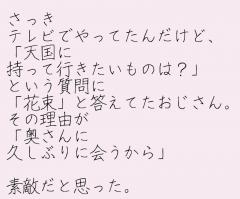 さっき
テレビでやってたんだけど、
「天国に
持って行きたいものは？」
という質問に
「花束」と答えてたおじさん。
その理由が
「奥さんに
久しぶりに会うから」
素敵だと思った。